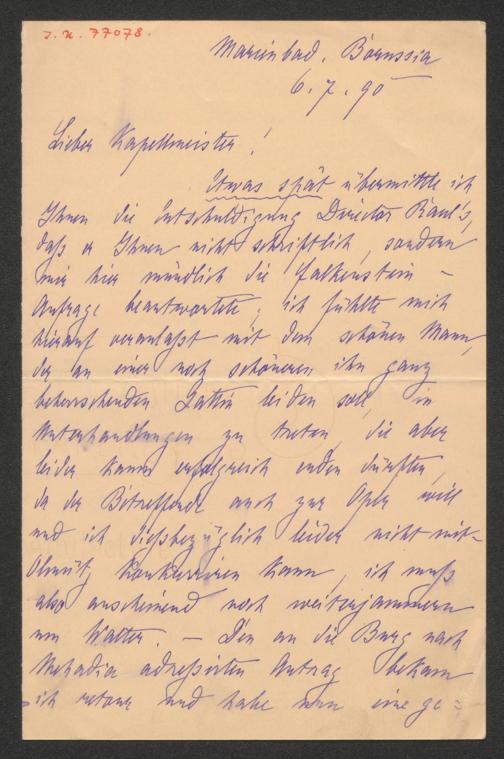 J. N. 77078.
Marienbad. Borussia
6. 7. 90
Lieber Kapellmeister!
Etwas spät übermittle ich
Ihnen die Entschuldigung Director Raul's,
daß er Ihnen nicht schriftlich, sondern
mir hier mündlich die Falkenstein-
Anfrage beantwortete; ich fühlte mich
hierauf veranlaßt mit dem schönen Mann,
der an einer noch schöneren ihn ganz
beherrschenden Gattin leiden soll, in
Unterhandlungen zu treten, die aber
leider kaum erfolgreich enden dürften,
da der Betreffende auch zur Oper will
und ich dießbezüglich leider nicht mit
Olmütz konkurriren kann, ich muß
also anscheinend noch weiterjammern
um Walter. — Den an die Burg nach
Mehadia adressirten Antrag bekam
ich retour und habe nun eine ge=